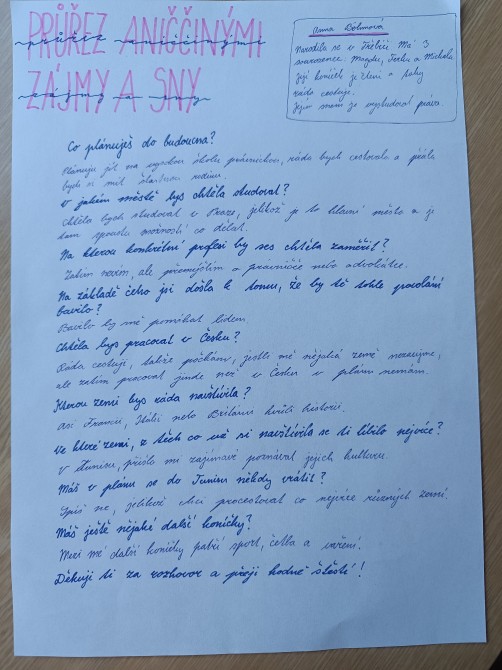 PRŮŘEZ ANIČČINÝMI
průřez aniččinými
ZÁJMY A SNY
zájmy a sny
Anna
Narodila se v Třebíči. Má 3
sourozence: Magdu, Terku a Michala
její koníček je čtení a taky
ráda cestuje.
Jejím snem je vystudovat práva.
Co plánuješ do budoucna?
Plánuju jít na vysokou školu právnickou, ráda bych cestovala a přála
bych si mít šťastnou rodinu.
V jakém městě bys chtěla studovat?
Chtěla bych studovat v Praze, jelikož je to hlavní město a je
tam spousta možností co dělat.
Na kterou konkrétní profesi by ses chtěla zaměřit?
Zatím nevím, ale přemýšlím o právničce nebo advokátce.
Na základě čeho jsi došla k tomu, že by tě tohle povolání
bavilo?
Bavilo by mě pomáhat lidem.
Chtěla bys pracovat v Česku?
Ráda cestuji, takže počkám, jestli mě nějaká země nezaujme,
ale zatím pracovat jinde než v Česku v plánu nemám.
Kterou zemi bys ráda navštívila?
Asi Francii, Itálii nebo Británii kvůli historii.
Ve které zemi, z těch co už si navštívila se ti líbilo nejvíce?
V Tunisu, přišlo mi zajímavé poznávat jejich kulturu.
Máš v plánu se do Tunisu někdy vrátit?
Spíš ne, jelikož chci procestovat co nejvíce různých zemí.
Máš ještě nějaké další koníčky?
Mezi mé další koníčky patří sport, četba a vaření.
Děkuji ti za rozhovor a přeji hodně štěstí!